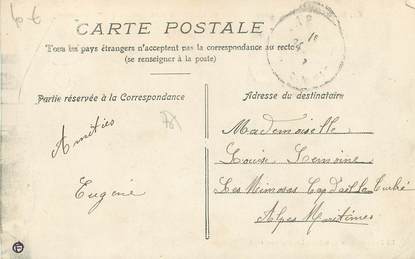 CARTE POSTALE
Tous les pays étrangers n'acceptent pas la correspondance au recto
(se renseigner à la poste)
Partie réservée à la Correspondance
Adresse du destinataire
Amitiés
Eugénie
Mademoiselle
Louise Lemoine
Les Mimosas Cap d'ail la Turbie
Alpes Maritimes